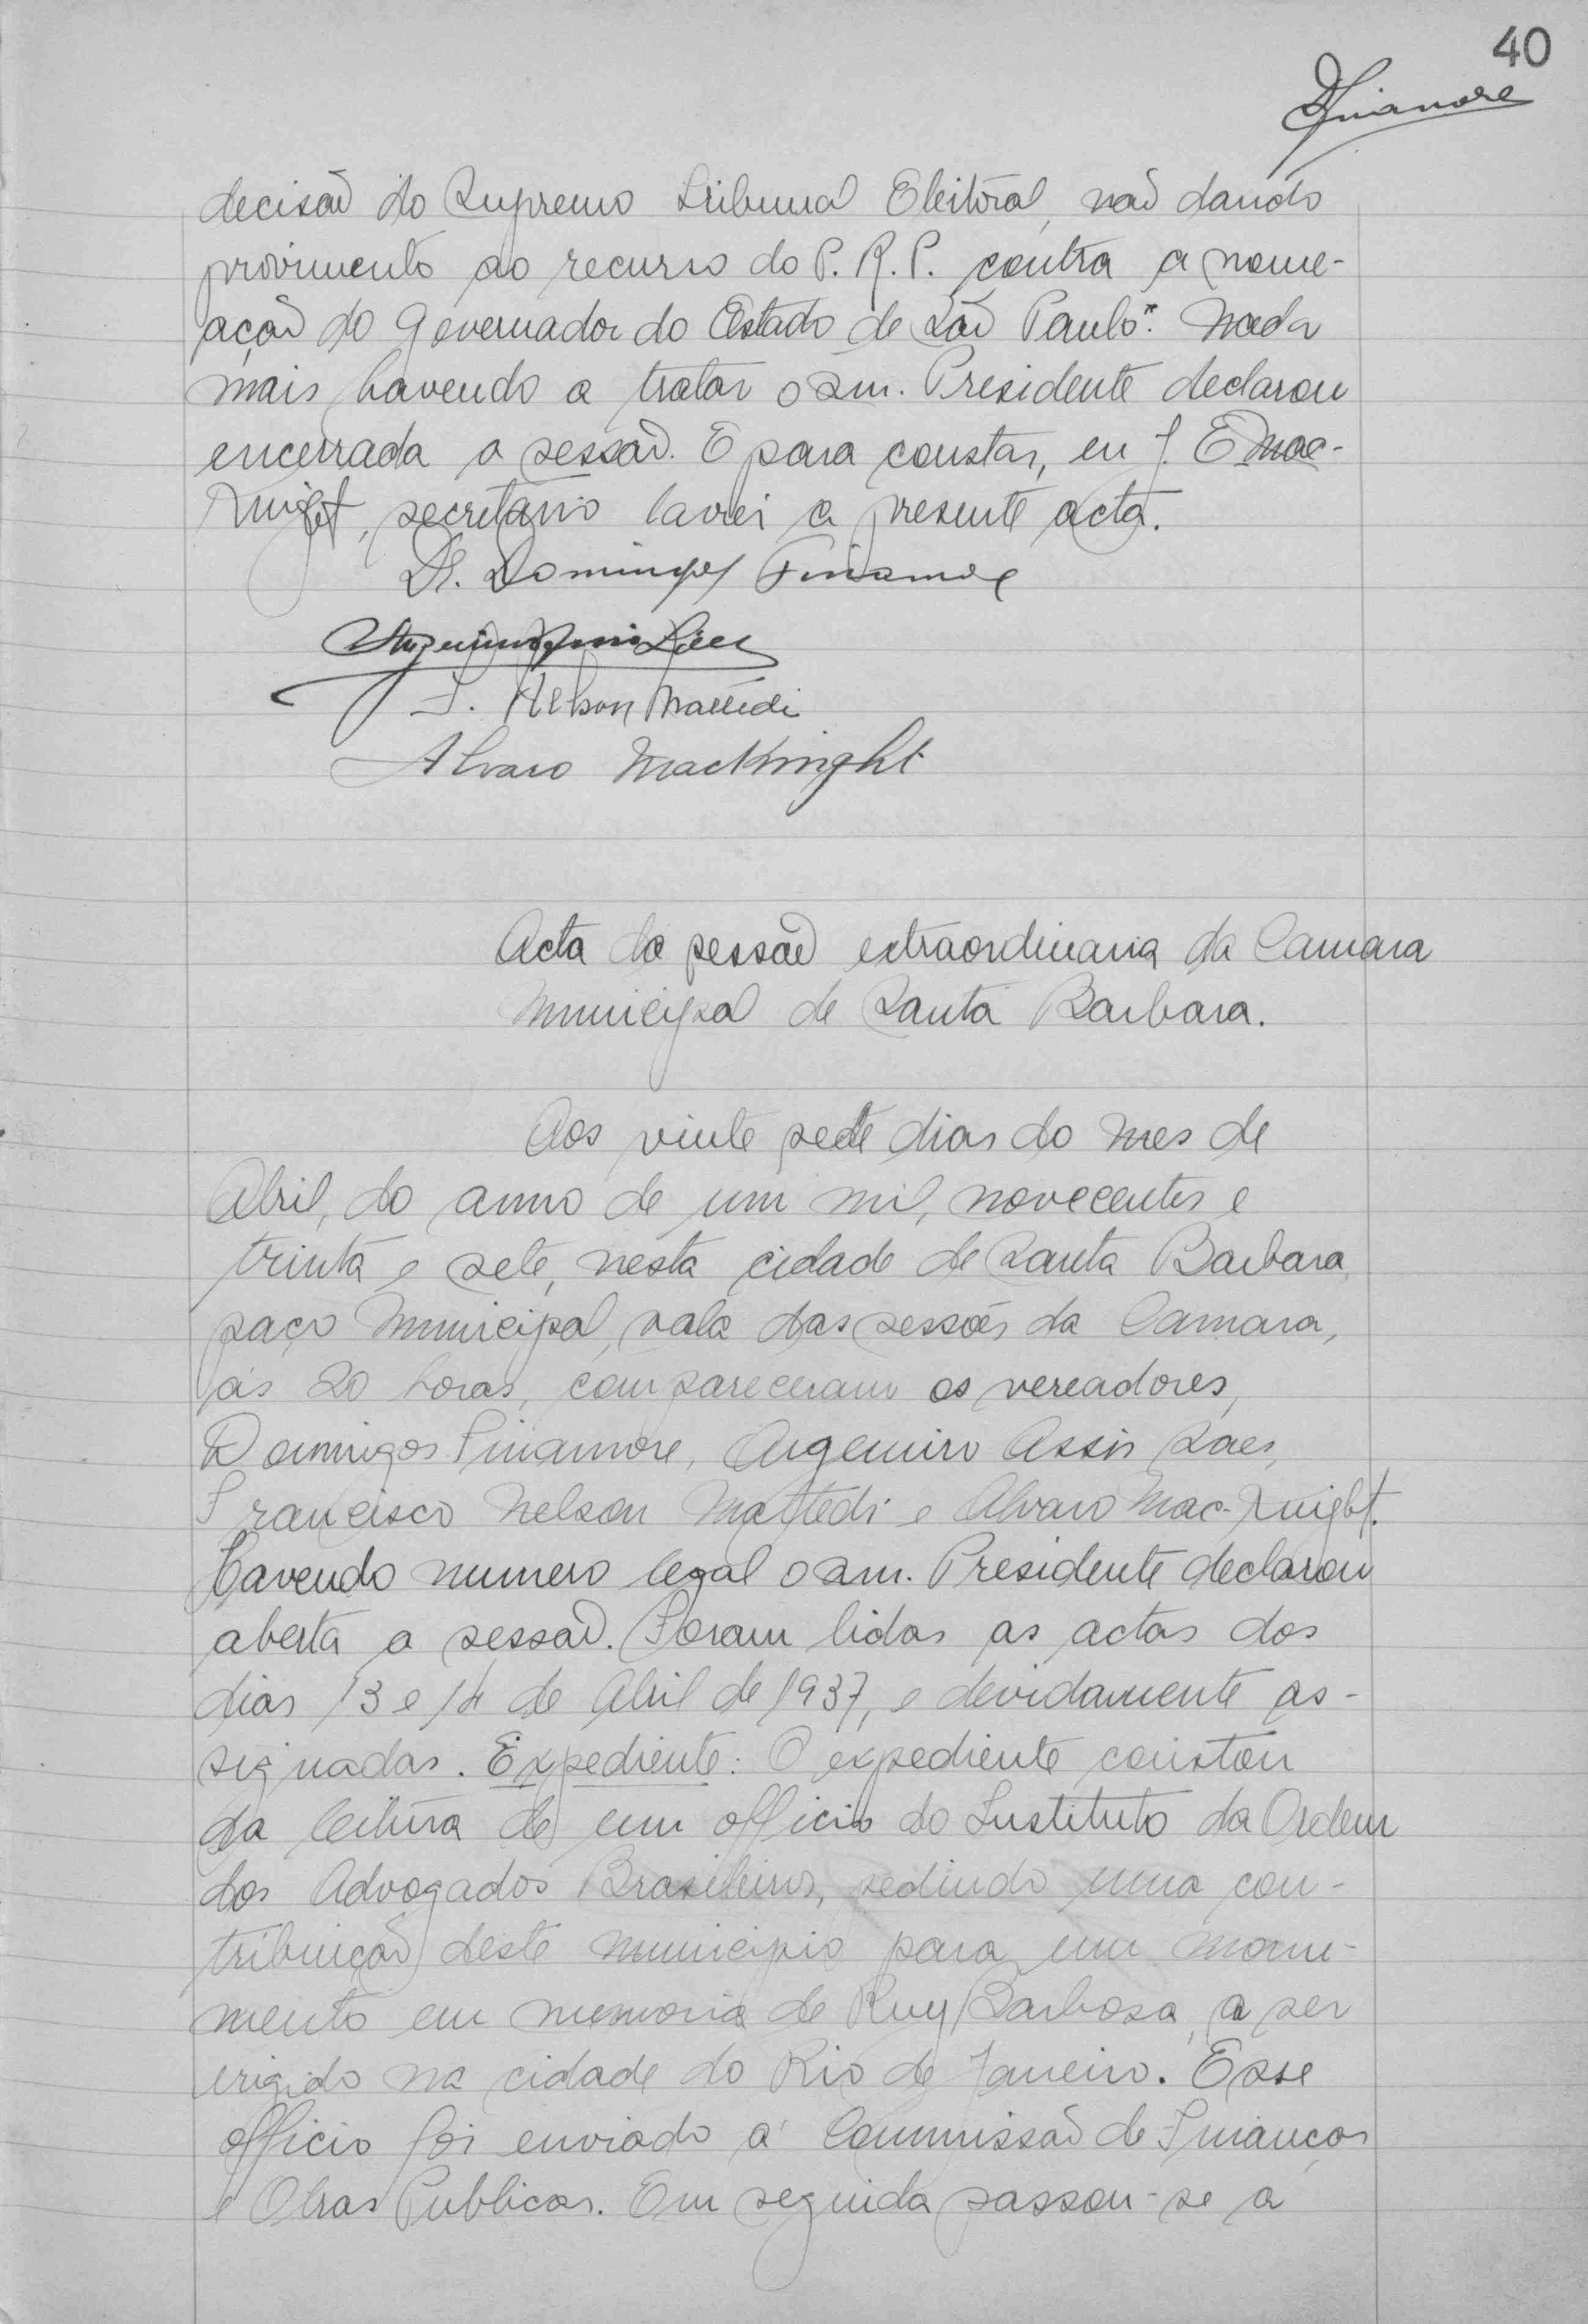 40
DFinamore
decisão do Supremo Tribunal Eleitoral, não dando
provimento ao recurso do P. R. P. contra a nome-
ação do Governador do Estado de São Paulo". Nada
mais havendo a tratar o snr. Presidente declarou
encerrada a sessão. E para constar, eu J. E Mac-
Knight, secretario lavrei a presente acta.
Dr. Domingos Finamore
Argemiro Assis Saes
F. Nelson Mattedi
Alvaro MacKnight
Acta da sessão extraordinaria da Camara
Municipal de Santa Barbara.
Aos vinte sete dias do mes de
Abril, do anno de um mil, novecentos e
trinta e sete, nesta cidade de Santa Barbara,
paço Municipal, sala das sessões da Camara,
ás 20 horas, compareceram os vereadores,
Domingos Finamore, Argemiro Assis Saes,
Francisco Nelson Mattedi e Alvaro Mac-Knight.
Havendo numero legal o snr. Presidente declarou
aberta a sessão. Foram lidas as actas dos
dias 13 e 14 de Abril de 1937, e devidamente as-
signadas. Expediente: O expediente constou
da leitura de um officio do Instituto da Ordem
dos Advogados Brasileiros, pedindo uma con-
tribuição deste municipio para um monu-
mento em memoria de Ruy Barbosa, a ser
erigido na cidade do Rio de Janeiro. Esse
officio foi enviado á Commissão de Finanças
e Obras Publicas. Em seguida passou-se a